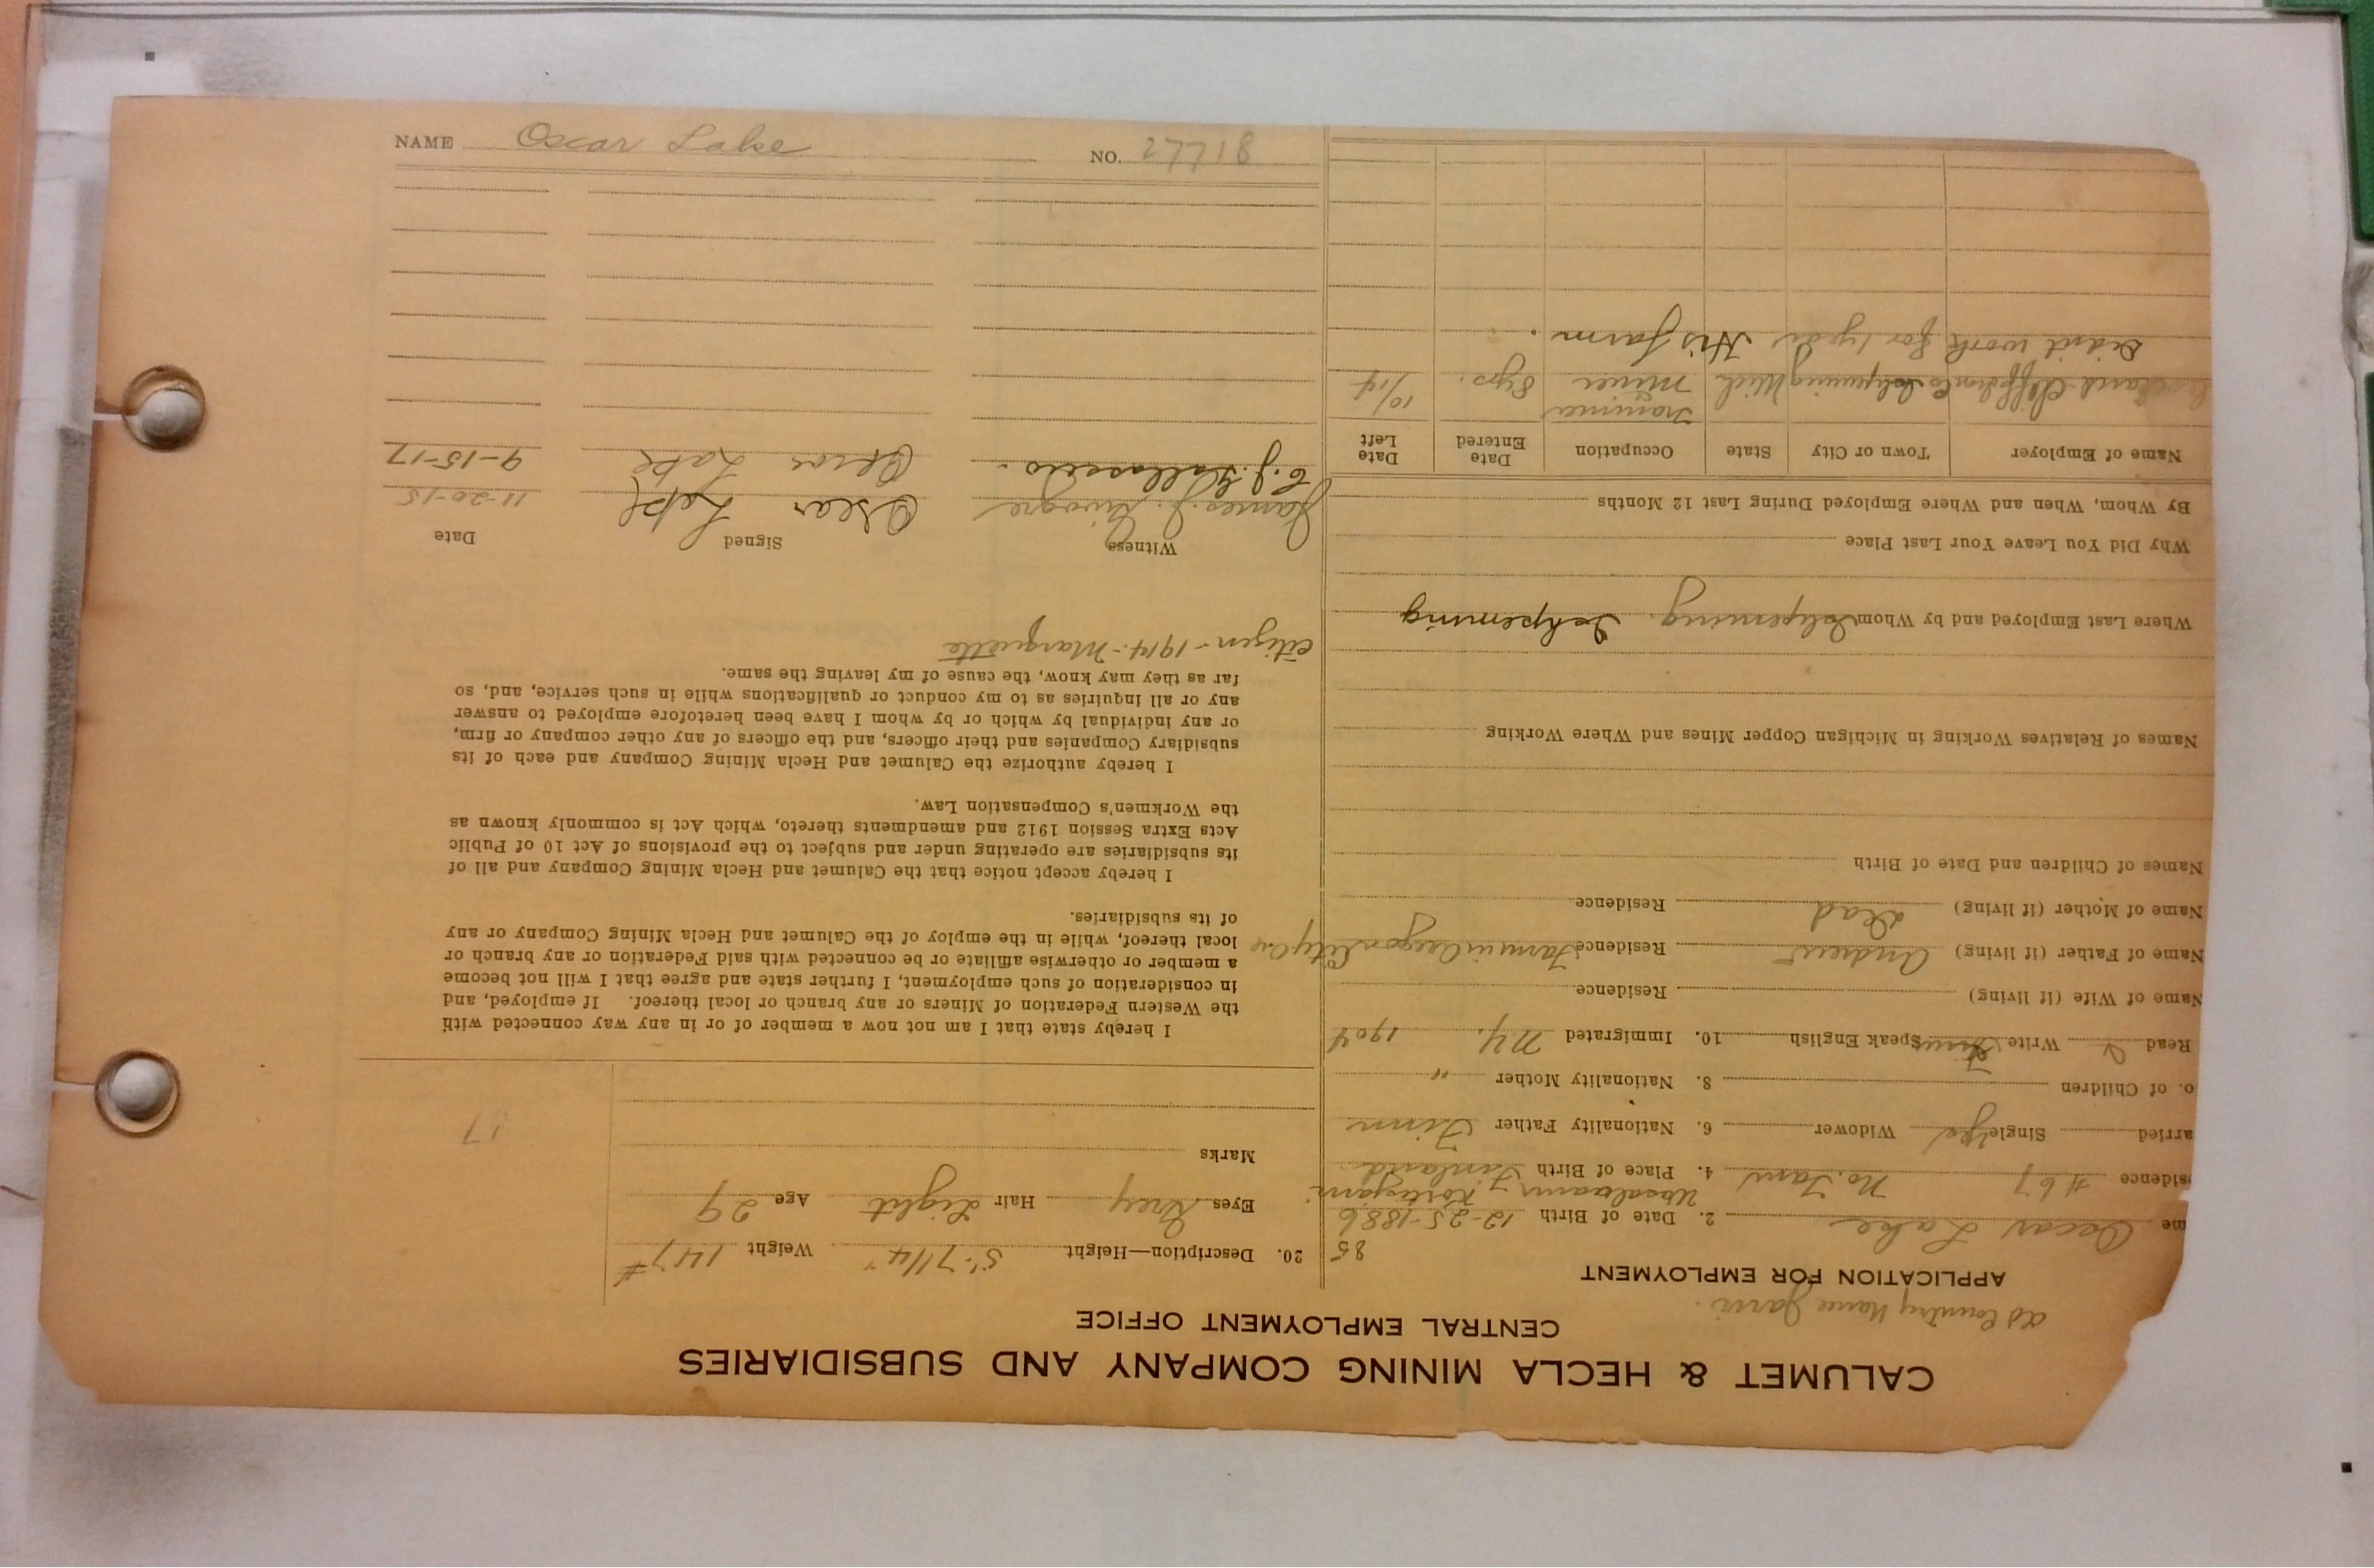 CALUMET & HECLA MINING COMPANY AND SUBSIDIARIES
CENTRAL EMPLOYMENT OFFICE
Country Name Jarvi.
APPLICATION FOR EMPLOYMENT
me Oscar Lake 2. Date of Birth 12-25-1886 85
sidence #67 No. Tam 4. Place of Birth Finland
arried Single yes Widower 6. Nationality Father Finn
o. of Children 8. Nationality Mother "
Read Write Finn Speak English 10. Immigrated N.Y. 1904
Name of Wife (if living) Residence
Name of Father (if living) Andrew Residence Farm in Oregon City Ore
Name of Mother (if living) dead Residence
Names of Children and Date of Birth
Names of Relatives Working in Michigan Copper Mines and Where Working
Where Last Employed and by Whom Ishpeming. Ishpeming
Why Did You Leave Your Last Place
By Whom, When and Where Employed During Last 12 Months
Name of Employer Town or City State Occupation Date Entered Date Left
Trammer
Cliffs Iron Co Ishpeming Mich Miner 8 yrs. 10/14
Didn't work for 1 year His farm.
20. Description—Height 5'-7 1/4" Weight 147#
Eyes Grey Hair Light Age 29
Marks
17
I hereby state that I am not now a member of or in any way connected with
the Western Federation of Miners or any branch or local thereof. If employed, and
in consideration of such employment, I further state and agree that I will not become
a member or otherwise affiliate or be connected with said Federation or any branch or
local thereof, while in the employ of the Calumet and Hecla Mining Company or any
of its subsidiaries.
I hereby accept notice that the Calumet and Hecla Mining Company and all of
its subsidiaries are operating under and subject to the provisions of Act 10 of Public
Acts Extra Session 1912 and amendments thereto, which Act is commonly known as
the Workmen's Compensation Law.
I hereby authorize the Calumet and Hecla Mining Company and each of its
subsidiary Companies and their officers, and the officers of any other company or firm,
or any individual by which or by whom I have been heretofore employed to answer
any or all inquiries as to my conduct or qualifications while in such service, and, so
far as they may know, the cause of my leaving the same.
Citizen - 1914 - Marquette
Witness Signed Date
James J. Oscar Lake 11-20-15
E. J. Oscar Lake 9-15-17
NAME Oscar Lake NO. 27718